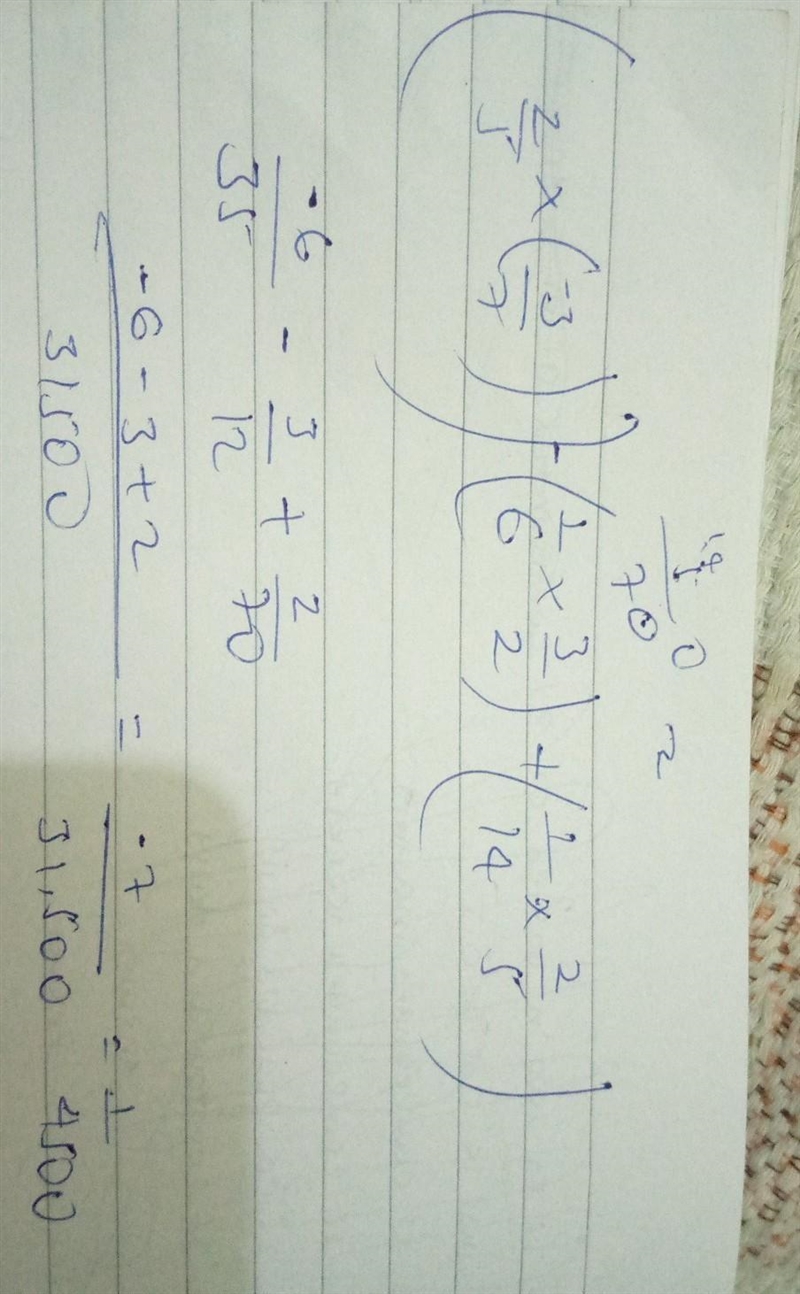 (2/5 × (-3/7)) - (1/6 × 3/2) + (1/14 × 2/5)
-6/35 - 3/12 + 2/70
-6-3+2/31500 = -7/31,500 = 1/4500